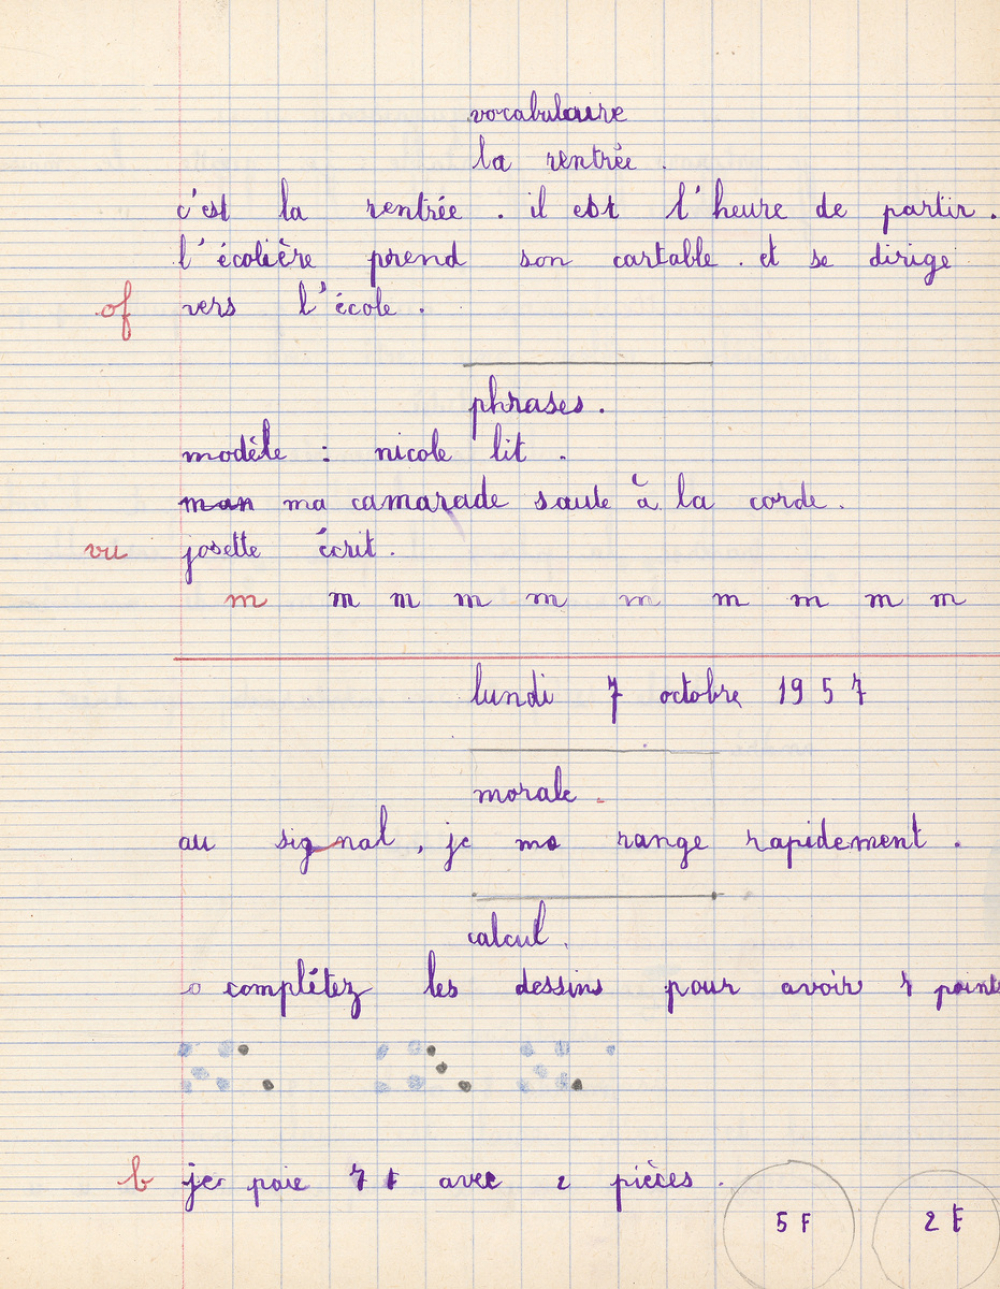 vocabulaire
la rentrée.
c'est la rentrée. il est l'heure de partir.
l'écolière prend son cartable. et se dirige
vers l'école.
phrases.
modèle : nicole lit.
man ma camarade saute à la corde.
vu josette écrit.
m m m m m m m m m m
lundi 7 octobre 1957
morale.
au signal, je me range rapidement.
calcul.
complétez les dessins pour avoir 7 points
b je paie 7 F avec 2 pièces.
5 F 2 F